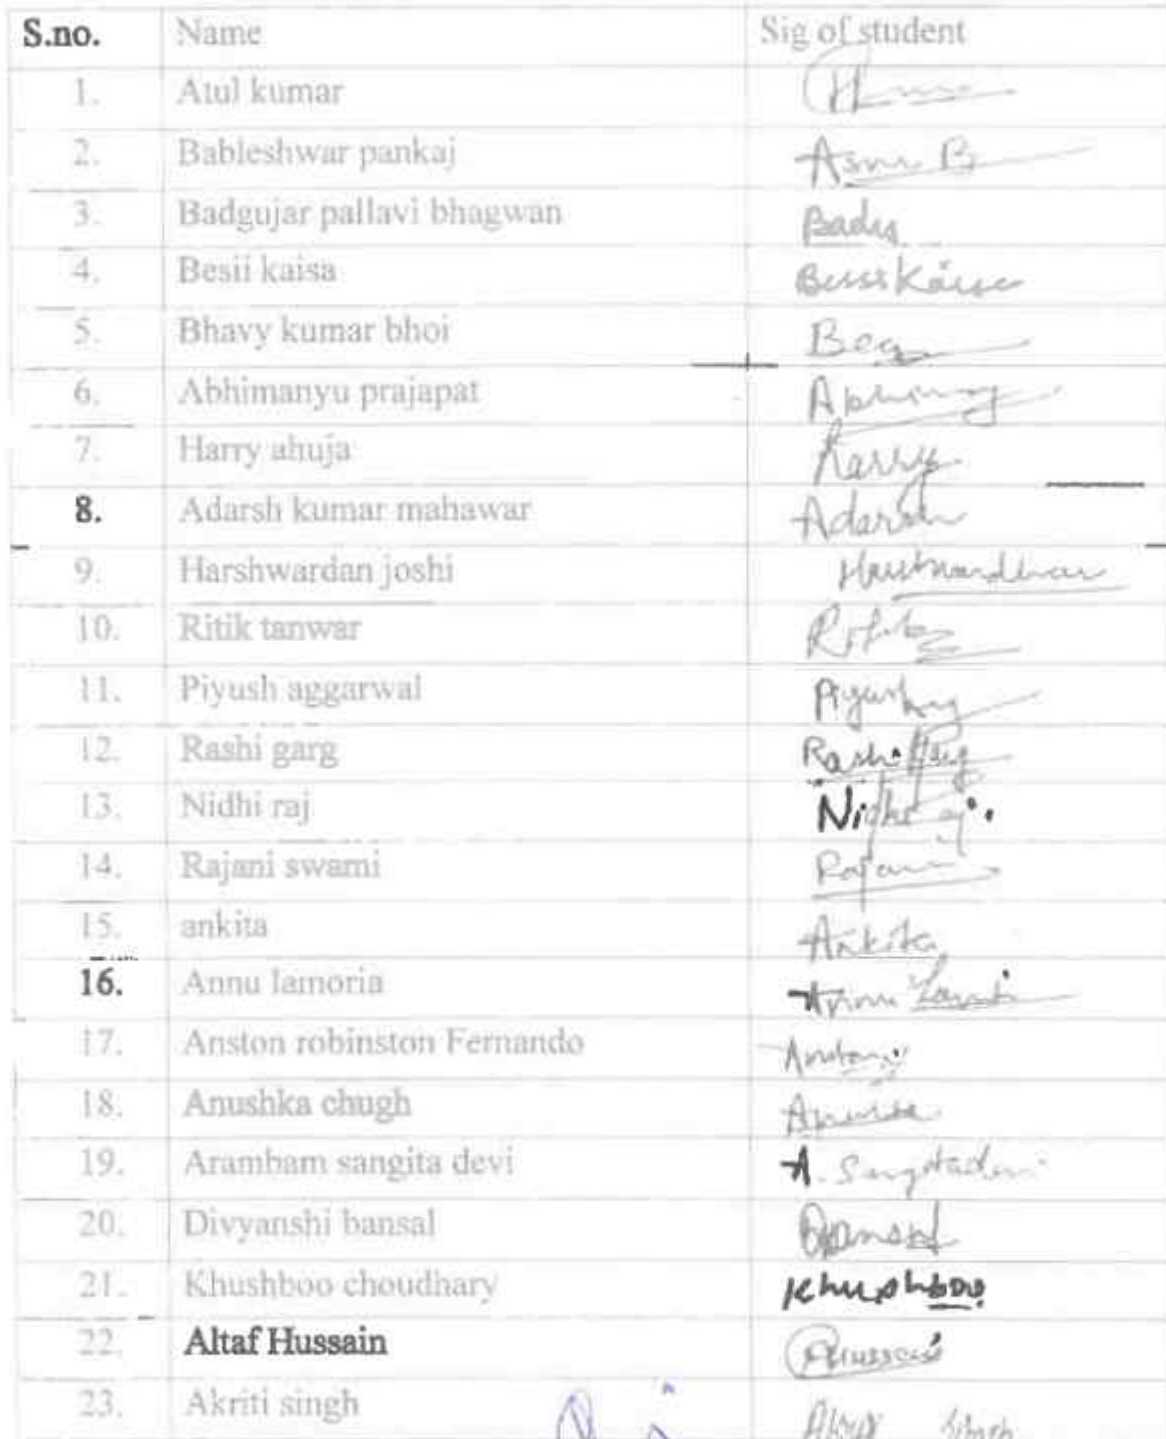 S.no. Name Sig of student
1. Atul kumar
2. Bableshwar pankaj
3. Badgujar pallavi bhagwan
4. Besii kaisa
5. Bhavy kumar bhoi
6. Abhimanyu prajapat
7. Harry ahuja Harry
8. Adarsh kumar mahawar Adarsh
9. Harshwardan joshi
10. Ritik tanwar
11. Piyush aggarwal Piyush
12. Rashi garg Rashi
13. Nidhi raj Nidhi
14. Rajani swami Rajani
15. ankita Ankita
16. Annu lamoria Annu
17. Anston robinston Fernando
18. Anushka chugh
19. Arambam sangita devi A. Sangitadevi
20. Divyanshi bansal
21. Khushboo choudhary Khushboo
22. Altaf Hussain
23. Akriti singh